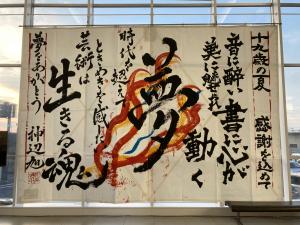 十九歳の夏 感謝を込めて
音に酔い書に心が
動く
夢
時代を超えて
ときめきを感じ
芸術は
生きる魂
夢をありがとう
神辺旭